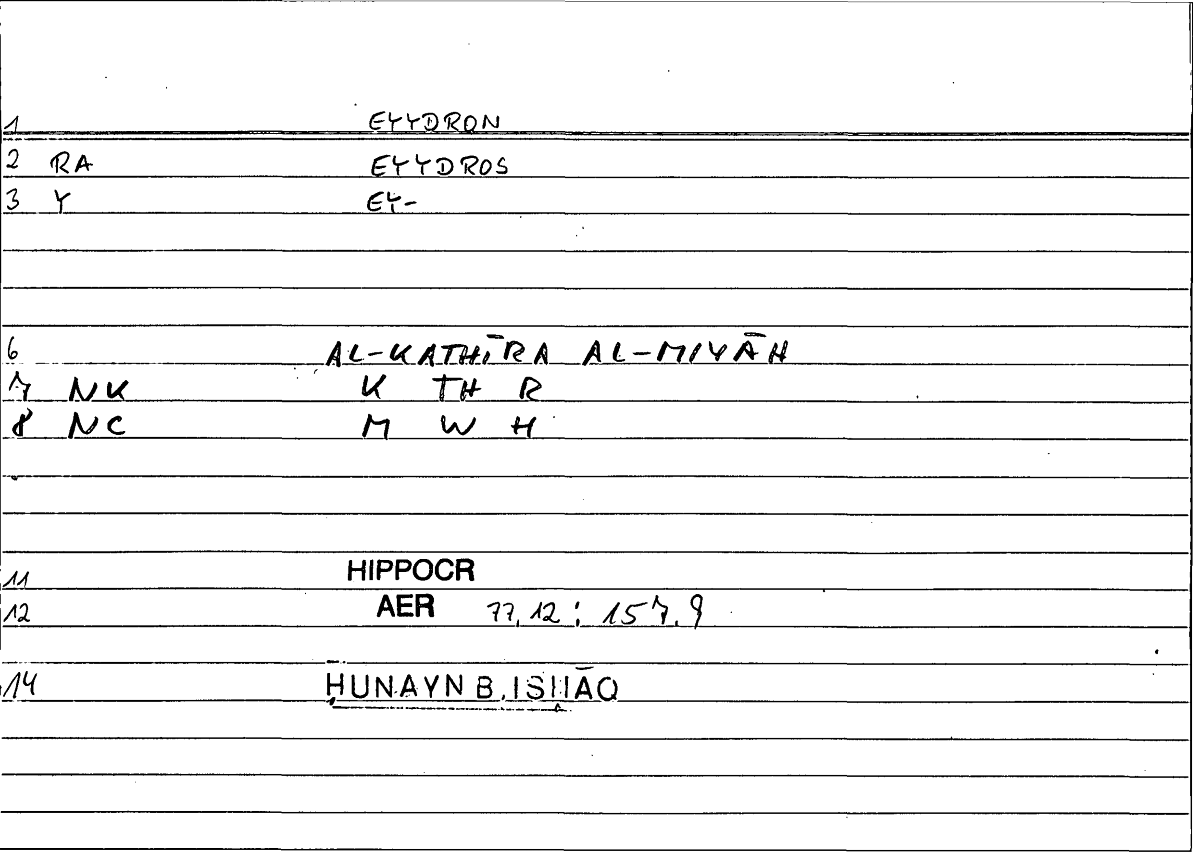 1 EYYDRON
2 RA EYYDROS
3 Y EY-
6 AL-KATHĪRA AL-MIYĀH
7 NK K TH R
8 NC M W H
11 HIPPOCR
12 AER 77,12 : 157.9
14 ḤUNAYN B. ISḤĀQ